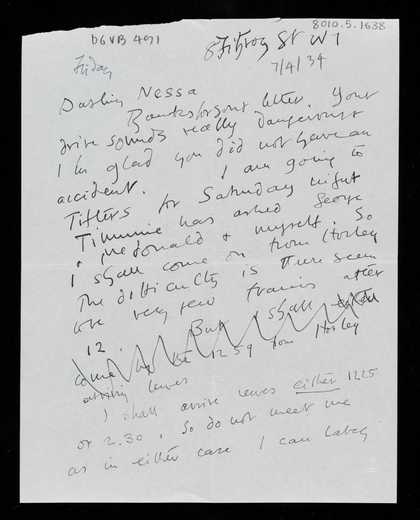 DGVB 491
8010.5.1638
8 Fitzroy St W1
7/4/34
Friday
Darling Nessa
Thanks for your letter. Your
drive sounds really dangerous &
I am glad you did not have an
accident. I am going to
Tilters for Saturday night
Timmie has asked George
& McDonald & myself. So
I shall come on from Horley
The difficulty is there seem
to be very few trains after
12. But I shall
come by the 12 59 from Horley
arriving Lewes
I shall arrive Lewes either 12.25
or 2.30. So do not meet me
as in either case I can take